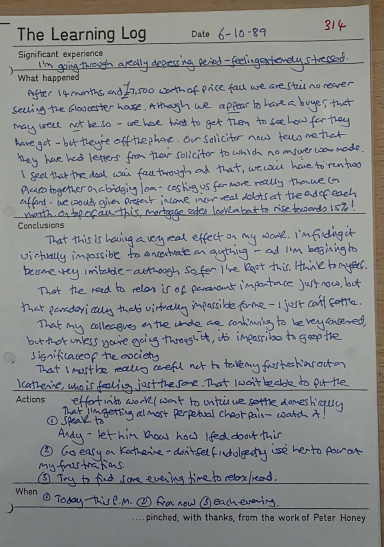 314
The Learning Log Date 6-10-89
Significant experience
I'm going through a really depressing period - feeling extremely stressed.
What happened
After 14 months, and £7,500 worth of price fall we are still no nearer
selling the Gloucester house. Although we appear to have a buyer, that
may well not be so - we have tried to get them to see how far they
have got - but they're off the phone. Our solicitor now tells me that
they have had letters from their solicitor to which no answer was made.
I feel that the deal will fall through and that, we will have to run two
places together on a bridging loan - costing us far more really than we can
afford. We would, given present income incur real debts at the end of each
month. On top of all this, mortgage rates look about to rise towards 15%!
Conclusions
That this is having a very real effect on my work. I'm finding it
virtually impossible to concentrate on anything - and I'm beginning to
become very irritable - although so far I've kept this, I think to myself.
That the need to relax is of paramount importance just now, but
that paradoxically that's virtually impossible for me - I just can't settle.
That my colleagues on the whole are continuing to be very concerned,
but that unless you're going through it, it's impossible to grasp the
significance of the
That I must be really careful not to take my frustrations out on
Katherine, who is feeling just the same. That I won't be able to put the
effort into work I want to until we settle domestically
Actions That I'm getting almost perpetual chest pain - watch it!
① Speak to
Andy - let him know how I feel about this
② Go easy on Katherine - don't self indulgently use her to pour out
my frustrations.
③ Try to find some evening time to relax/read.
When ① Today - this P.M. ② from now ③ each evening.
.... pinched, with thanks, from the work of Peter Honey